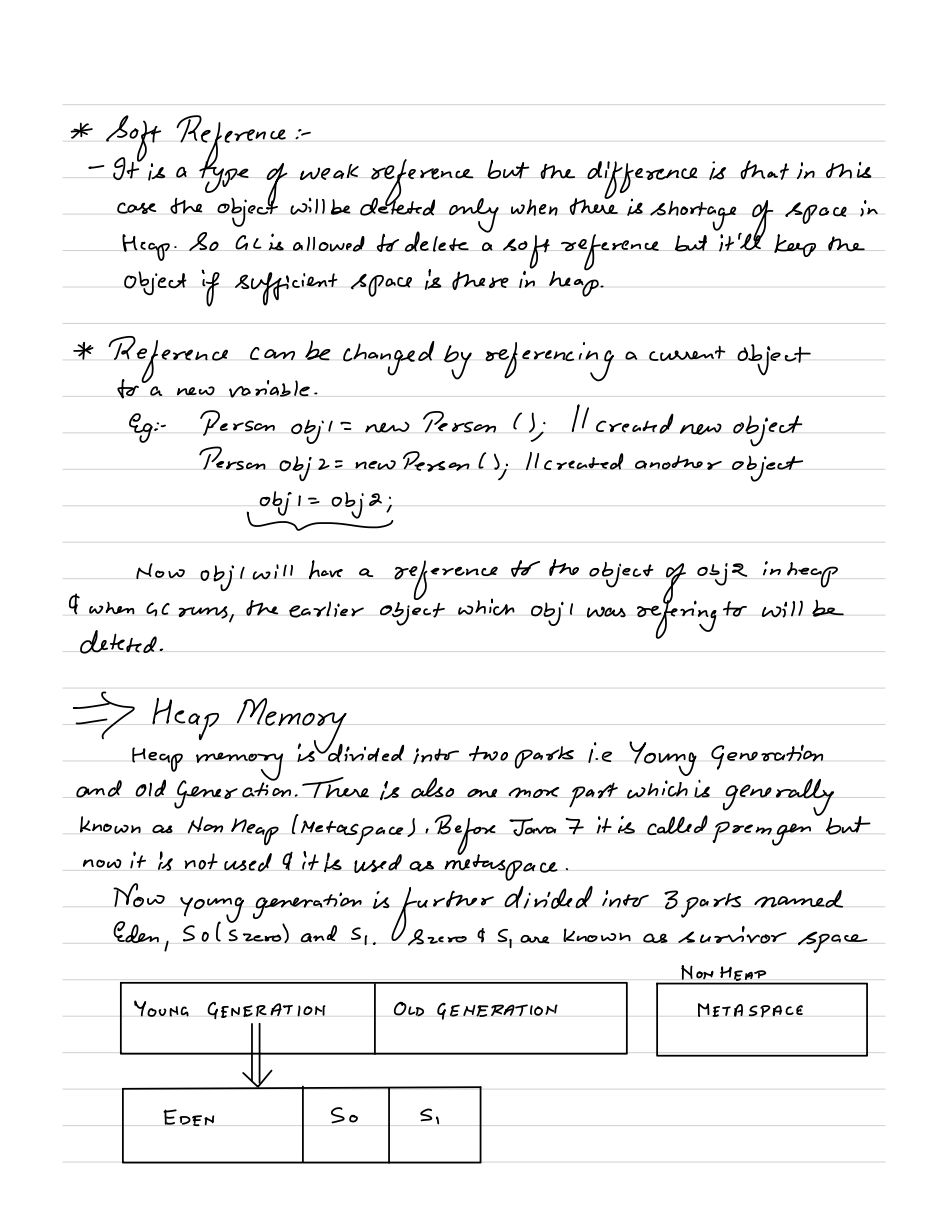 * Soft Reference :-
- It is a type of weak reference but the difference is that in this
case the object will be deleted only when there is shortage of space in
Heap. So GC is allowed to delete a soft reference but it'll keep the
object if sufficient space is there in heap.
* Reference can be changed by referencing a current object
to a new variable.
Eg:- Person obj1 = new Person (); // created new object
Person obj2 = new Person (); // created another object
obj1 = obj2;
Now obj1 will have a reference to the object of obj2 in heap
& when GC runs, the earlier object which obj1 was refering to will be
deleted.
⇒ Heap Memory
Heap memory is divided into two parts i.e Young Generation
and old Generation. There is also one more part which is generally
known as Non Heap (Metaspace). Before Java 7 it is called premgen but
now it is not used & it is used as metaspace.
Now young generation is further divided into 3 parts named
Eden, S0 (Szero) and S1. Szero & S1 are known as survivor space
NON HEAP
YOUNG GENERATION OLD GENERATION METASPACE
EDEN S0 S1